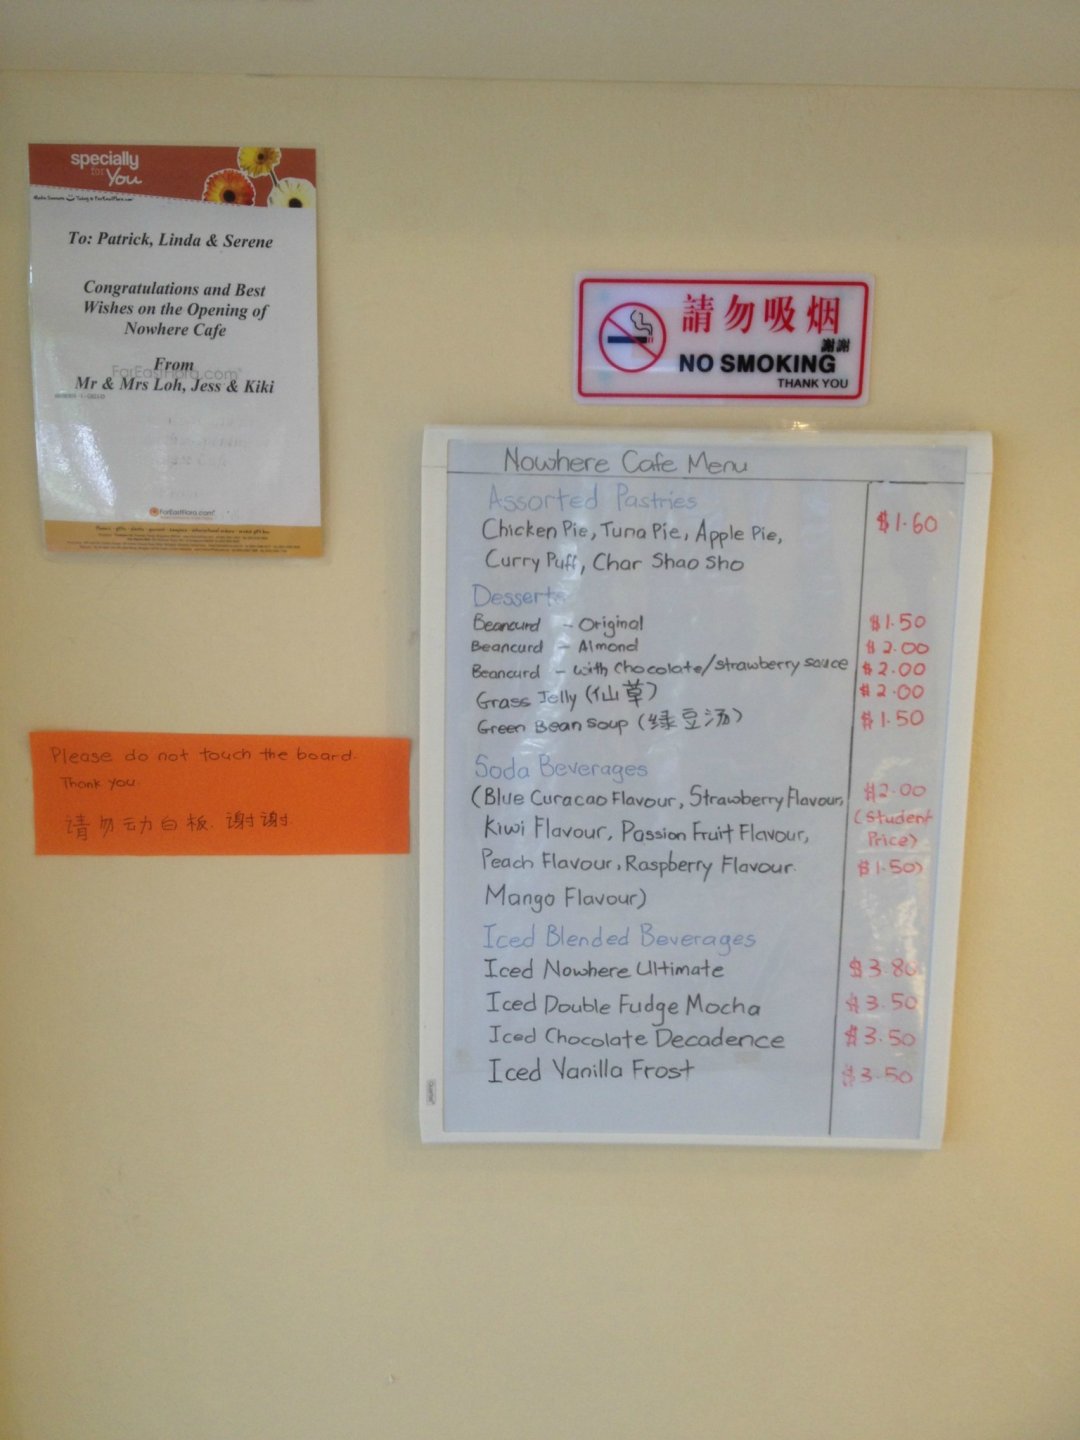 specially
for
You
To: Patrick, Linda & Serene
Congratulations and Best
Wishes on the Opening of
Nowhere Cafe
From
FarEastFlora.com
Mr & Mrs Loh, Jess & Kiki
FarEastFlora.com
請勿吸烟
謝謝
NO SMOKING
THANK YOU
Nowhere Cafe Menu
Assorted Pastries
Chicken Pie, Tuna Pie, Apple Pie, $1.60
Curry Puff, Char Shao Sho
Desserts
Beancurd - Original $1.50
Beancurd - Almond $2.00
Beancurd - with Chocolate/strawberry sauce $2.00
Grass Jelly (仙草) $2.00
Green Bean Soup (绿豆汤) $1.50
Soda Beverages
(Blue Curacao Flavour, Strawberry Flavour, $2.00
Kiwi Flavour, Passion Fruit Flavour, (Student Price)
Peach Flavour, Raspberry Flavour. $1.50)
Mango Flavour)
Iced Blended Beverages
Iced Nowhere Ultimate $3.80
Iced Double Fudge Mocha $3.50
Iced Chocolate Decadence $3.50
Iced Vanilla Frost $3.50
Please do not touch the board.
Thank you.
请勿动白板. 谢谢.